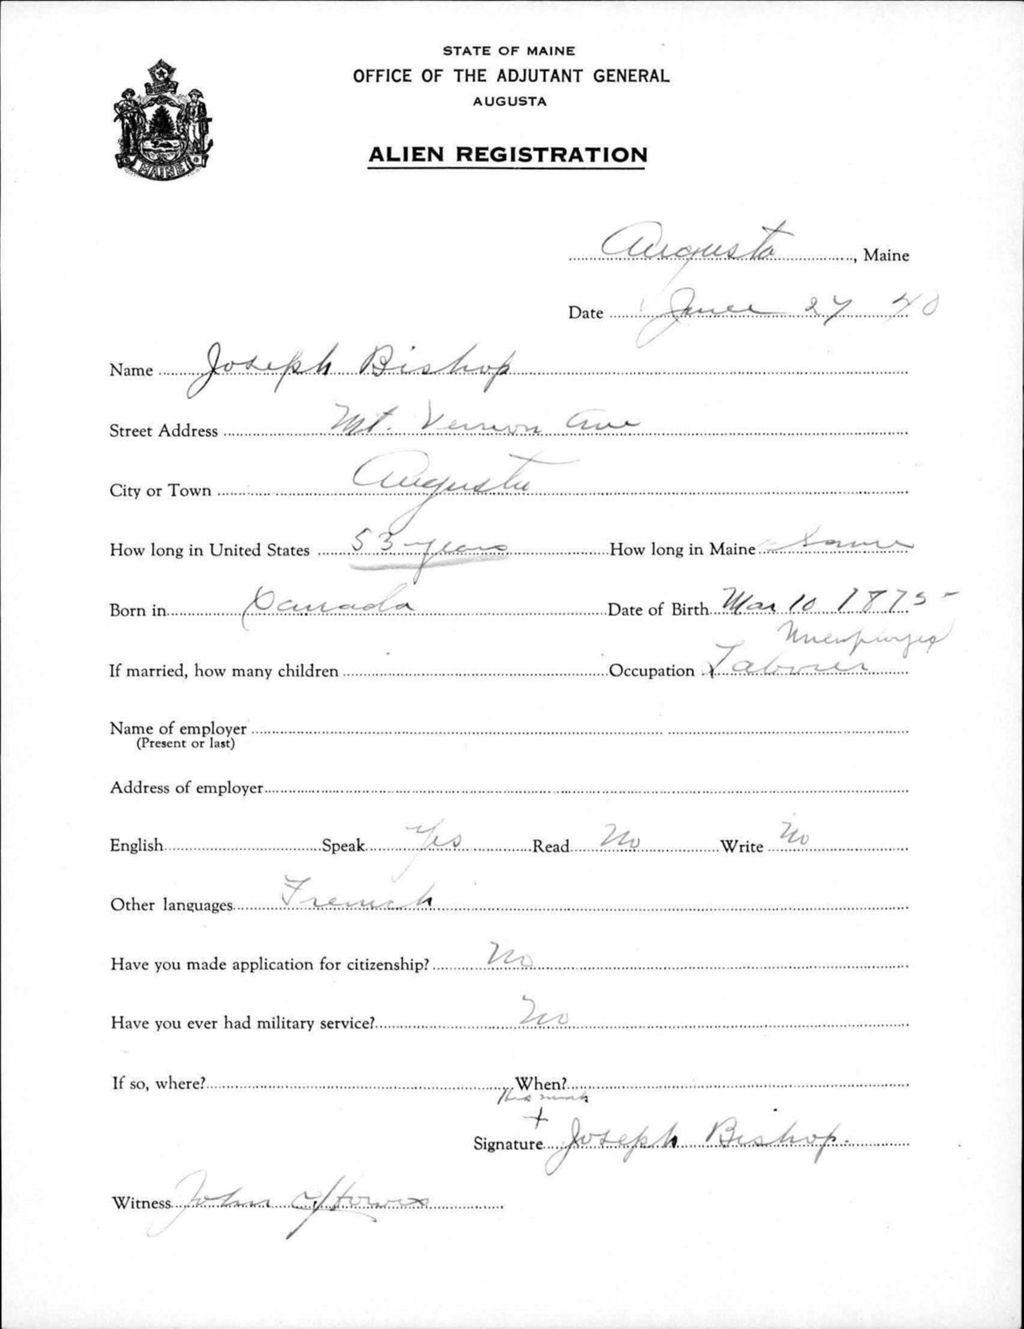 STATE OF MAINE
OFFICE OF THE ADJUTANT GENERAL
AUGUSTA
ALIEN REGISTRATION
MAINE
Augusta, Maine
Date June 27 40
Name Joseph Bishop
Street Address Mt. Vernon Ave
City or Town Augusta
How long in United States 53 years How long in Maine Same
Born in Canada Date of Birth Mar 10 1875
If married, how many children Occupation Laborer
Name of employer
(Present or last)
Address of employer
English Speak Yes Read No Write No
Other languages French
Have you made application for citizenship? No
Have you ever had military service? No
If so, where? When?
His mark
+
Signature Joseph Bishop.
Witness John